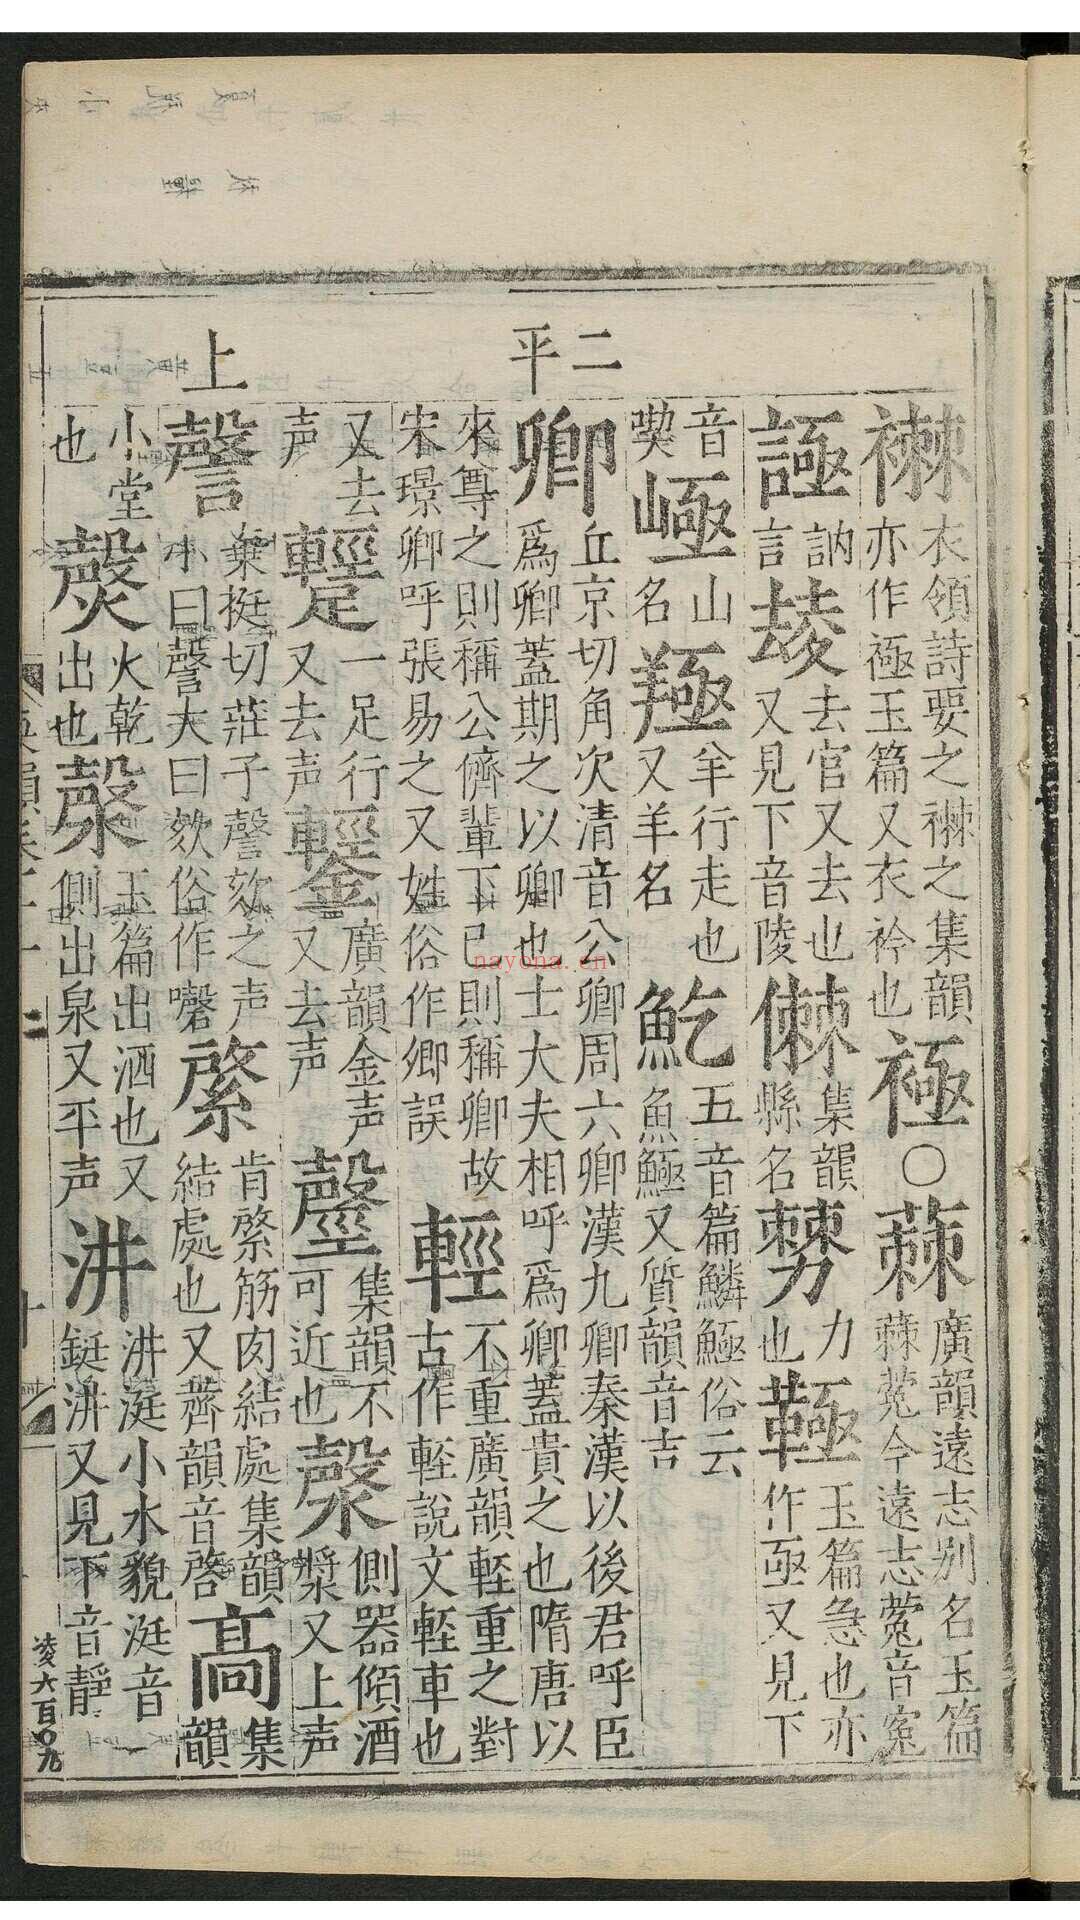 二
平
上
襋
衣領詩要之襋之集韻
亦作極玉篇又衣衿也
極
○
蕀
廣韻遠志别名玉篇
蕀蒬今遠志蒬音寃
訥
言
去官又去去也
又見下音陵
集韻
縣名
力
也
䩯
玉篇急也亦
作亟又見下
音
山
名
羊行走也
又羊名
五音篇鱗俗云
魚又質韻音吉
卿
丘京切角次清音公卿周六卿漢九卿秦漢以後君呼臣
爲卿蓋期之以卿也士大夫相呼爲卿蓋貴之也隋唐以
來尊之則稱公儕輩下已則稱卿故
宋璟卿呼張易之又姓俗作卿誤
輕
不重廣韻軽重之對
古作軽說文軽車也
又去
声
一足行
又去声
鑋
廣韻金声
又去声
集韻不
可近也
漀
側器傾酒
漿又上声
謦
棄挺切莊子謦欬之声
小曰謦大曰欬俗作
綮
肯綮筋肉結處集韻
結處也又薺韻音啓
集
韻
小堂
也
火乾
出也
漀
玉篇出酒也又
側出泉又平声
汫
汫涏小水貌涏音
鋌汫又見下音靜
凌六百〇九
nayona.cn